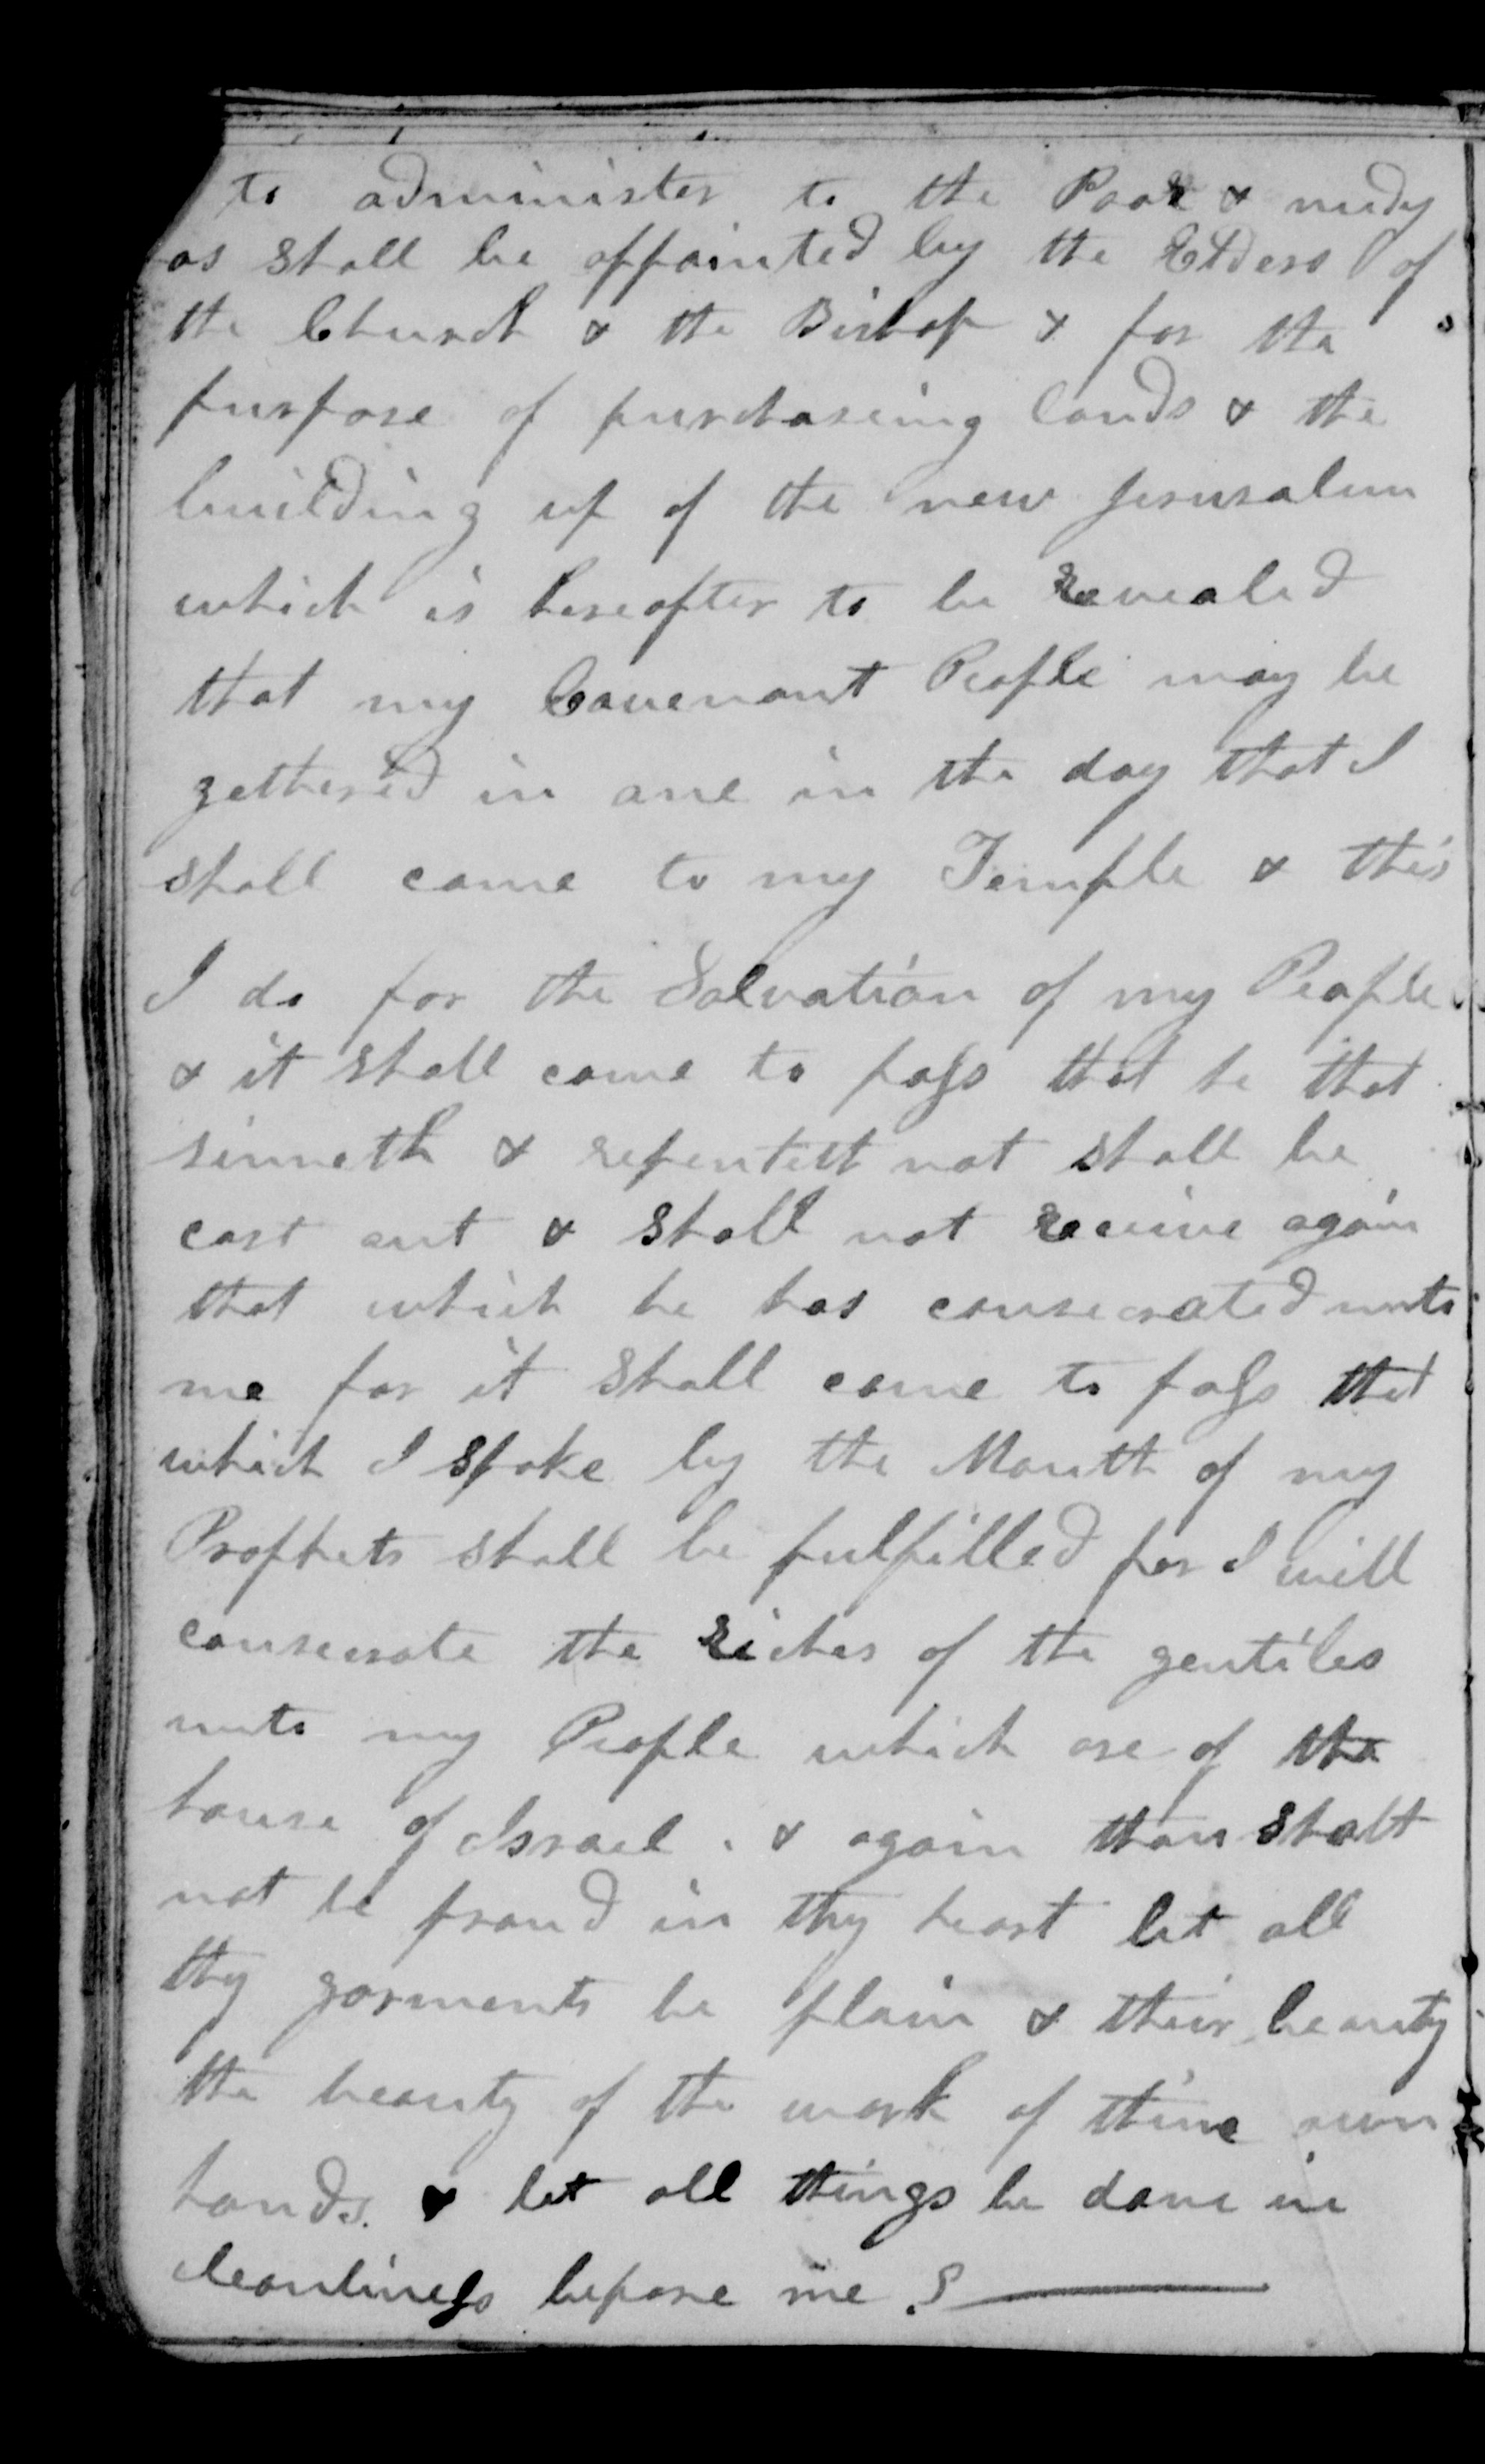 to administer to the Poor & nudy
as shall be appointed by the Elders of
the Church & the Bishop & for the
purpose of purchaseing lands & the
building up of the new Jerusalem
which is hereafter to be revealed
that my Covenant People may be
gethered in one in the day that I
shall come to my Temple & this
I do for the Salvation of my People
& it shall come to pass that he that
sinneth & repenteth not shall be
cast out & shall not receive again
that which he has consecrated unto
me for it shall come to pass that
which I spoke by the Mouth of my
Prophets shall be fulfilled for I will
consecrate the riches of the gentiles
unto my People which are of the
house of Israel. & again thou shalt
not be proud in thy heart let all
thy garments be plain & their beauty
the beauty of the work of thine own
hands. & let all things be done in
cleanliness before me